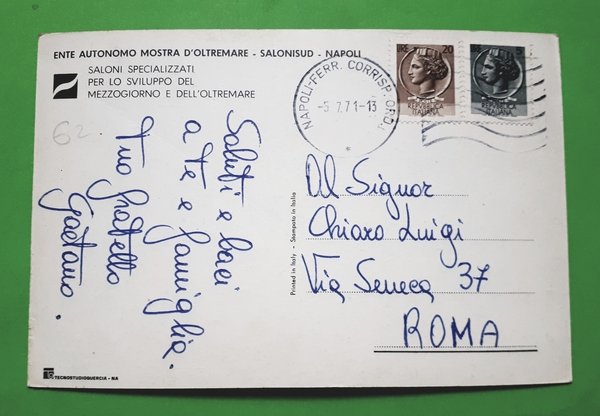 ENTE AUTONOMO MOSTRA D'OLTREMARE - SALONISUD - NAPOLI
SALONI SPECIALIZZATI
PER LO SVILUPPO DEL
MEZZOGIORNO E DELL'OLTREMARE
NAPOLI-FERR. CORRISP. ORD.
-5.7.71-13
LIRE 20
REPUBBLICA
ITALIANA
REPUBBLICA
ITALIANA
62
Saluti e baci
a te e famiglia.
Tuo fratello
Gaetano.
Printed in Italy - Stampato in Italia
Al Signor
Chiaro Luigi
Via Seneca 37
ROMA
TECNOSTUDIOQUERCIA - NA